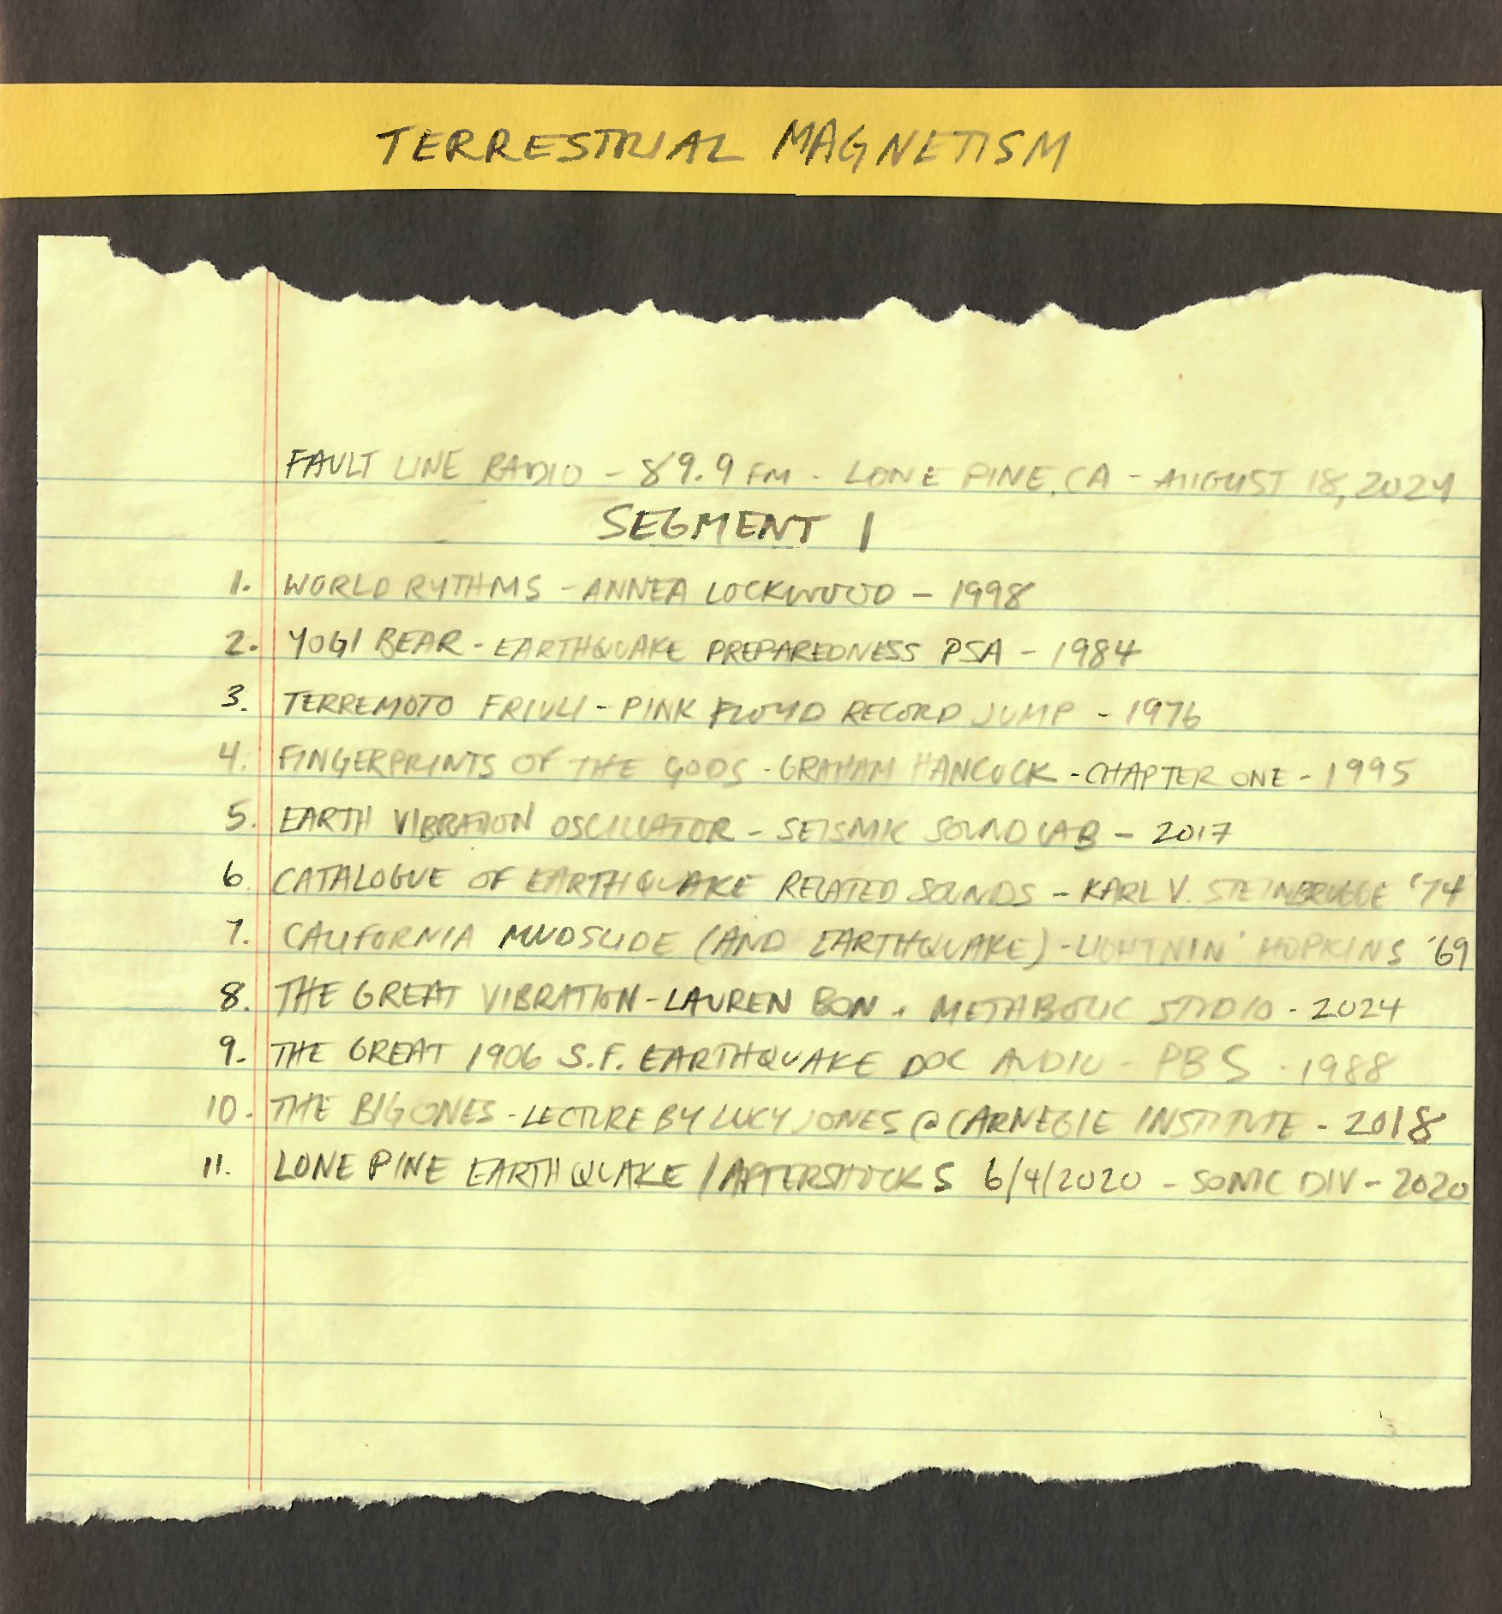 TERRESTRIAL MAGNETISM
FAULT LINE RADIO - 89.9 FM - LONE PINE, CA - AUGUST 18, 2024
SEGMENT 1
1. WORLD RYTHMS - ANNEA LOCKWOOD - 1998
2. YOGI BEAR - EARTHQUAKE PREPAREDNESS PSA - 1984
3. TERREMOTO FRIULI - PINK FLOYD RECORD JUMP - 1976
4. FINGERPRINTS OF THE GODS - GRAHAM HANCOCK - CHAPTER ONE - 1995
5. EARTH VIBRATION OSCILLATOR - SEISMIC SOUND LAB - 2017
6. CATALOGUE OF EARTHQUAKE RELATED SOUNDS - KARL V. STEINBRUGGE '74
7. CALIFORNIA MUDSLIDE (AND EARTHQUAKE) - LIGHTNIN' HOPKINS '69
8. THE GREAT VIBRATION - LAUREN BON + METABOLIC STUDIO - 2024
9. THE GREAT 1906 S.F. EARTHQUAKE DOC AUDIO - PBS - 1988
10. THE BIG ONES - LECTURE BY LUCY JONES @ CARNEGIE INSTITUTE - 2018
11. LONE PINE EARTHQUAKE / AFTERSHOCKS 6/4/2020 - SONIC DIV - 2020